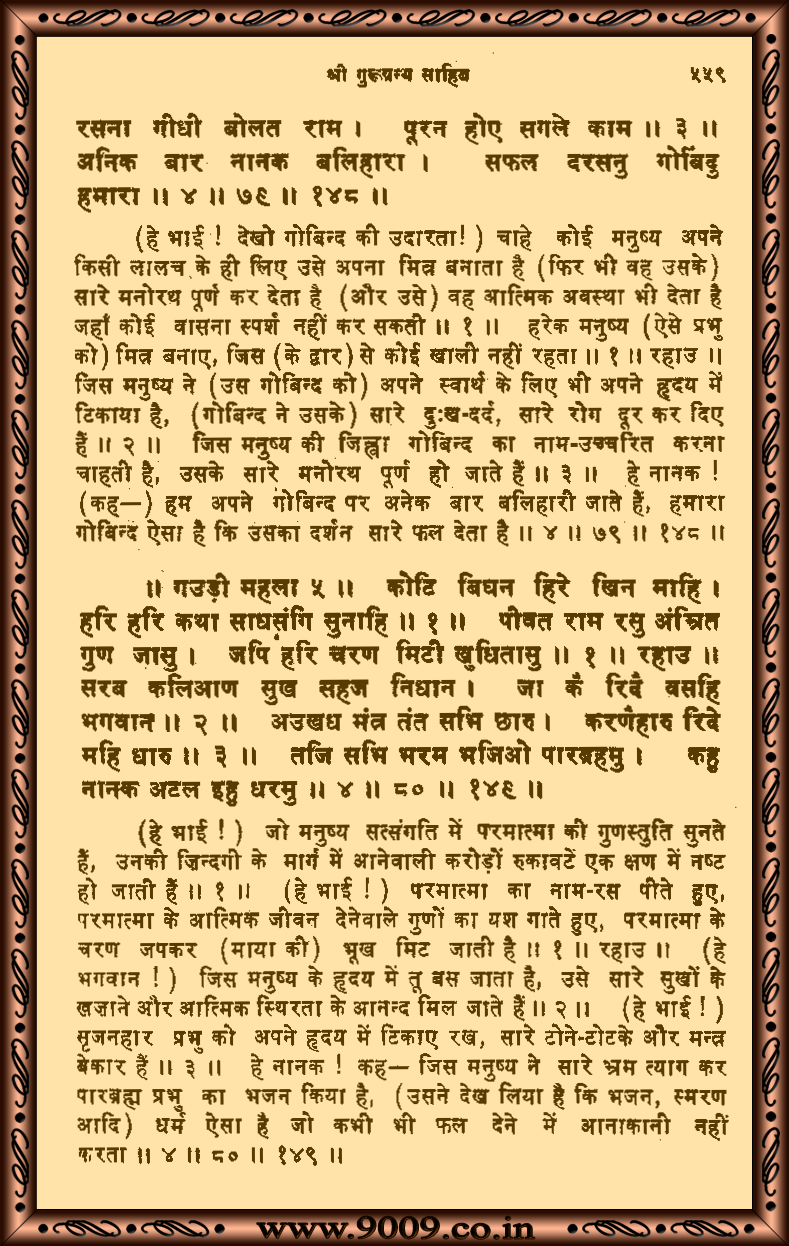 श्री गुरूग्रन्थ साहिब ५५९
रसना गीधी बोलत राम । पूरन होए सगले काम ॥ ३ ॥
अनिक बार नानक बलिहारा । सफल दरसनु गोबिंदु
हमारा ॥ ४ ॥ ७९ ॥ १४८ ॥
(हे भाई ! देखो गोबिन्द की उदारता! ) चाहे कोई मनुष्य अपने
किसी लालच के ही लिए उसे अपना मित्र बनाता है (फिर भी वह उसके)
सारे मनोरथ पूर्ण कर देता है (और उसे) वह आत्मिक अवस्था भी देता है
जहाँ कोई वासना स्पर्श नहीं कर सकती ॥ १ ॥ हरेक मनुष्य (ऐसे प्रभु
को) मित्र बनाए, जिस (के द्वार) से कोई खाली नहीं रहता ॥ १ ॥ रहाउ ॥
जिस मनुष्य ने (उस गोबिन्द को) अपने स्वार्थ के लिए भी अपने हृदय में
टिकाया है, (गोबिन्द ने उसके) सारे दुःख-दर्द, सारे रोग दूर कर दिए
हैं ॥ २ ॥ जिस मनुष्य की जिह्वा गोबिन्द का नाम-उच्चरित करना
चाहती है, उसके सारे मनोरथ पूर्ण हो जाते हैं ॥ ३ ॥ हे नानक !
(कह—) हम अपने गोबिन्द पर अनेक बार बलिहारी जाते हैं, हमारा
गोबिन्द ऐसा है कि उसका दर्शन सारे फल देता है ॥ ४ ॥ ७९ ॥ १४८ ॥
॥ गउड़ी महला ५ ॥ कोटि बिघन हिरे खिन माहि ।
हरि हरि कथा साधसंगि सुनाहि ॥ १ ॥ पीवत राम रसु अंम्रित
गुण जासु । जपि हरि चरण मिटी खुधितासु ॥ १ ॥ रहाउ ॥
सरब कलिआण सुख सहज निधान । जा कै रिदै वसहि
भगवान ॥ २ ॥ अउखध मंत्र तंत सभि छारु । करणैहारु रिदे
महि धारु ॥ ३ ॥ तजि सभि भरम भजिओ पारब्रहमु । कहु
नानक अटल इहु धरमु ॥ ४ ॥ ८० ॥ १४९ ॥
(हे भाई ! ) जो मनुष्य सत्संगति में परमात्मा की गुणस्तुति सुनते
हैं, उनकी ज़िन्दगी के मार्ग में आनेवाली करोड़ों रुकावटें एक क्षण में नष्ट
हो जाती हैं ॥ १ ॥ (हे भाई ! ) परमात्मा का नाम-रस पीते हुए,
परमात्मा के आत्मिक जीवन देनेवाले गुणों का यश गाते हुए, परमात्मा के
चरण जपकर (माया की) भूख मिट जाती है ॥ १ ॥ रहाउ ॥ (हे
भगवान ! ) जिस मनुष्य के हृदय में तू बस जाता है, उसे सारे सुखों के
खज़ाने और आत्मिक स्थिरता के आनन्द मिल जाते हैं ॥ २ ॥ (हे भाई ! )
सृजनहार प्रभु को अपने हृदय में टिकाए रख, सारे टोने-टोटके और मन्त्र
बेकार हैं ॥ ३ ॥ हे नानक ! कह— जिस मनुष्य ने सारे भ्रम त्याग कर
पारब्रह्म प्रभु का भजन किया है, (उसने देख लिया है कि भजन, स्मरण
आदि) धर्म ऐसा है जो कभी भी फल देने में आनाकानी नहीं
करता ॥ ४ ॥ ८० ॥ १४९ ॥
www.9009.co.in